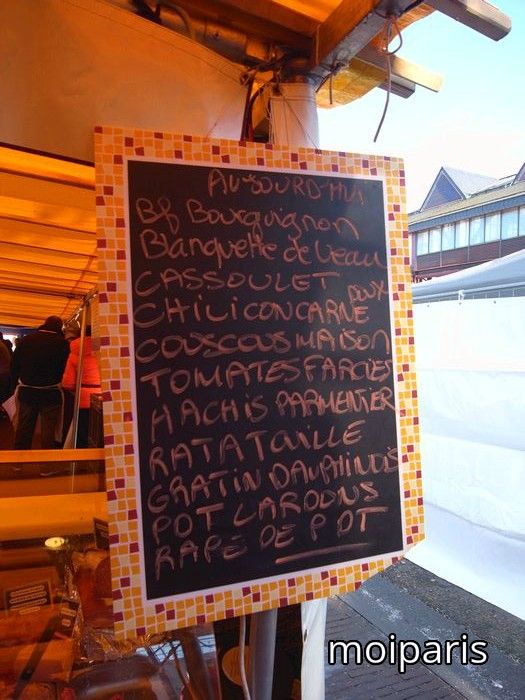 AUJOURD'HUI
Bf Bourguignon
Blanquette de Veau
CASSOULET
CHILI CON CARNE DOUX
COUSCOUS MAISON
TOMATES FARCIES
HACHiS PARMENTIER
RATATOUILLE
GRATIN DAUPHINOIS
POT LARDONS
RAPÉ DE P DT
moiparis